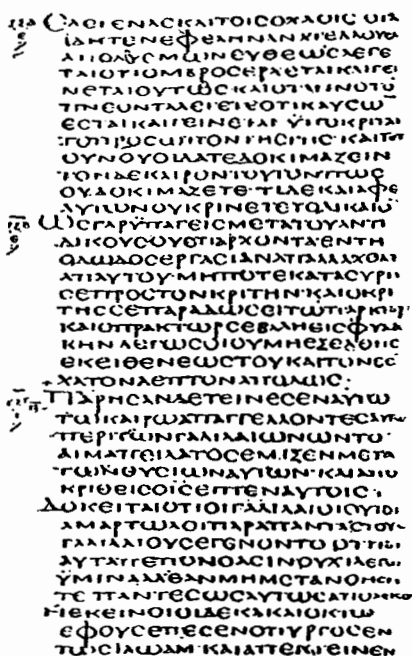 ЄΛΕΓΕΝΔΕΚΑΙΤΟΙCΟΧΛΟΙCΟΤΑ
ΙΔΗΤΕΝΕΦΕΛΗΝΑΝΑΤΕΛΛΟΥCΑ
ΑΠΟΔΥCΜωΝΕΥΘΕωCΛΕΓΕ
ΤΑΙΟΤΙΟΜΒΡΟCΕΡΧΕΤΑΙΚΑΙΓΕΙ
ΝΕΤΑΙΟΥΤωCΚΑΙΟΤΑΝΝΟΤΟ
ΠΝΕΟΝΤΑΛΕΓΕΤΕΟΤΙΚΑΥCω
ΕCΤΑΙΚΑΙΓΕΙΝΕΤΑΙΫΠΟΚΡΙΤΑΙ
ΤΟΠΡΟCωΠΟΝΤΗCΓΗC·ΚΑΙΤΟΥ
ΟΥΝΟΥΟΙΔΑΤΕΔΟΚΙΜΑΖΕΙΝ
ΤΟΝΔΕΚΑΙΡΟΝΤΟΥΤΟΝΠωC
ΟΥΔΟΚΙΜΑΖΕΤΕ·ΤΙΔΕΚΑΙΑΦΕ
ΑΥΤωΝΟΥΚΡΙΝΕΤΕΤΟΔΙΚΑΙΟ
ωCΓΑΡΫΠΑΓΕΙCΜΕΤΑΤΟΥΑΝΤΙ
ΔΙΚΟΥCΟΥΕΠΑΡΧΟΝΤΑΕΝΤΗ
ΟΔωΔΟCΕΡΓΑCΙΑΝΑΠΑΛΛΑΧΘΑΙ
ΑΠΑΥΤΟΥΜΗΠΟΤΕΚΑΤΑCΥΡΗ
CΕΠΡΟCΤΟΝΚΡΙΤΗΝ·ΚΑΙΟΚΡΙ
ΤΗCCΕΠΑΡΑΔωCΕΙΤωΠΡΑΚΤΟΡΙ
ΚΑΙΟΠΡΑΚΤωΡCΕΒΑΛΗΕΙCΦΥΛΑ
ΚΗΝΛΕΓωCΟΙΟΥΜΗΕΞΕΛΘΗC
ΕΚΕΙΘΕΝΕωCΤΟΥΚΑΙΤΟΝΕC
ΧΑΤΟΝΛΕΠΤΟΝΑΠΟΔωC:
ΠΑΡΗCΑΝΔΕΤΕΙΝΕCΕΝΑΥΤω
ΤωΚΑΙΡωΑΠΑΓΓΕΛΛΟΝΤΕCΑΥΤω
ΠΕΡΙΤωΝΓΑΛΙΛΑΙωΝωΝΤΟ
ΑΙΜΑΠΕΙΛΑΤΟCΕΜΙΞΕΝΜΕΤΑ
ΤωΝΘΥCΙωΝΑΥΤωΝ·ΚΑΙΑΠΟ
ΚΡΙΘΕΙCΟΙCΕΙΠΕΝΑΥΤΟΙC·
ΔΟΚΕΙΤΑΙΟΤΙΟΙΓΑΛΙΛΑΙΟΙΟΥΤΟΙ
ΑΜΑΡΤωΛΟΙΠΑΡΑΠΑΝΤΑCΤΟΥC
ΓΑΛΙΛΑΙΟΥCΕΓΕΝΟΝΤΟΟΤΙ
ΑΥΤΑΠΕΠΟΝΘΑCΙΝΟΥΧΙΛΕΓω
ΫΜΙΝΑΛΛΑΕΑΝΜΗΜΕΤΑΝΟΗCΗ
ΤΕΠΑΝΤΕCωCΑΥΤωCΑΠΟΛΕΙCΘΕ
ΗΕΚΕΙΝΟΙΟΙΔΕΚΑΚΑΙΟΚΤω
ΕΦΟΥCΕΠΕCΕΝΟΠΥΡΓΟCΕΝ
ΤωCΙΛωΑΜ·ΚΑΙΑΠΕΚΤΕΙΝΕΝ